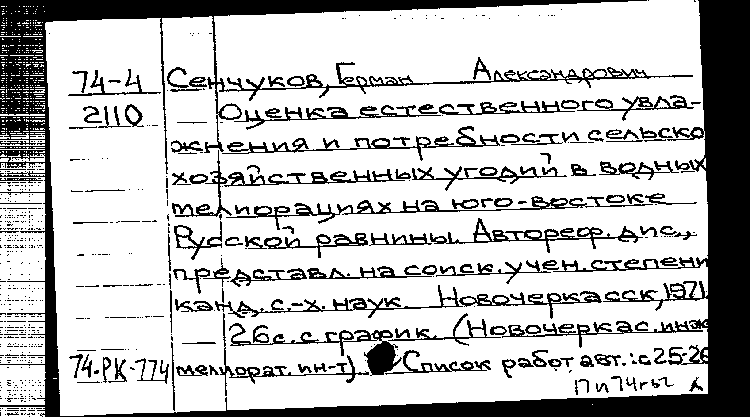 74-4 Сенчуков, Герман Александрович
2110 Оценка естественного увла-
жнения и потребности сельско
хозяйственных угодий в водных
мелиорациях на юго-востоке
Русской равнины. Автореф. дис.,
представл. на соиск. учен. степени
канд. с.-х. наук. Новочеркасск, 1971
26 с. с график. (Новочеркас. инж
74-РК-774 мелиорат. ин-т) Список работ авт.: с 25-26